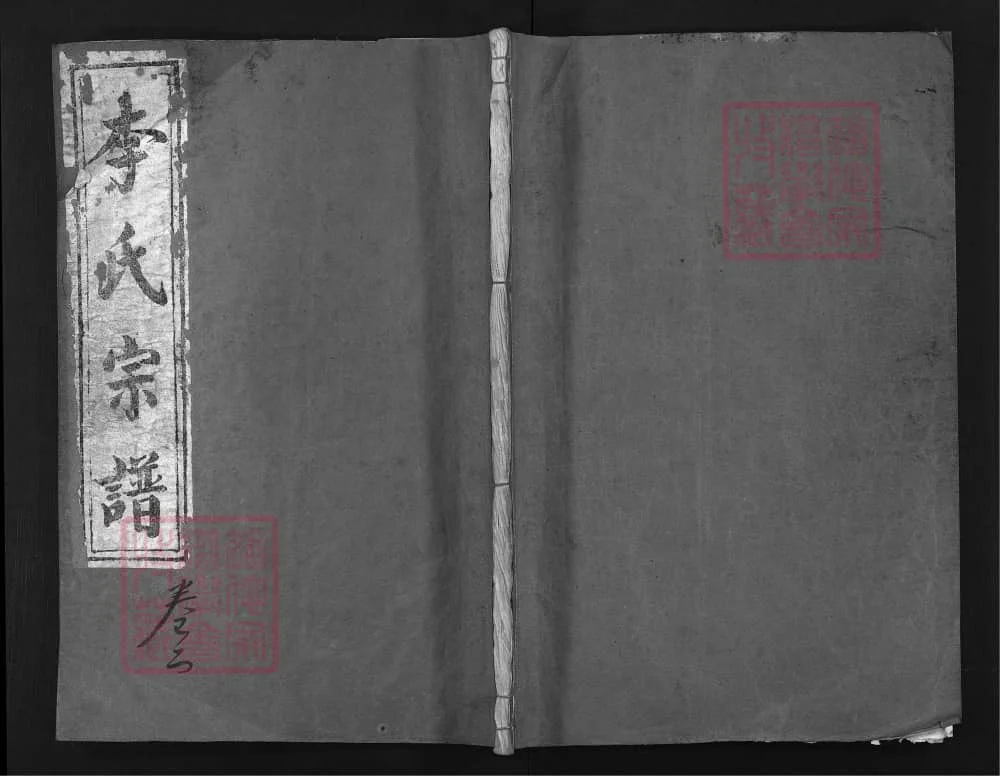 李氏宗譜
卷二